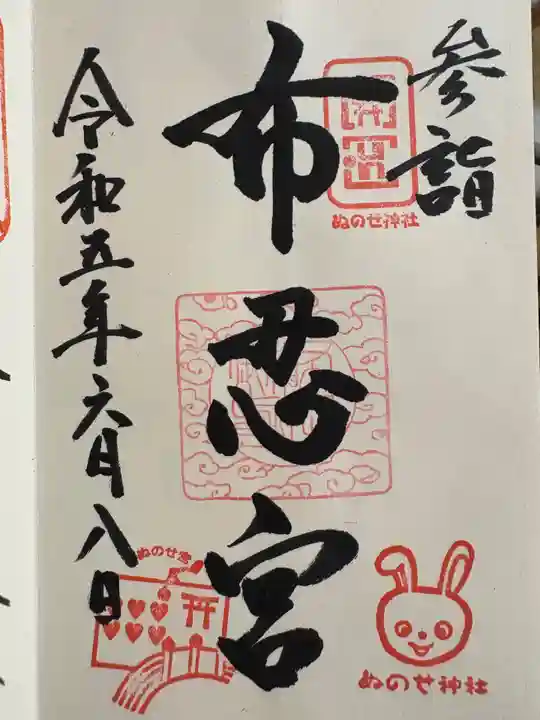 参詣
ぬのせ神社
布忍宮
令和五年六月八日
ぬのせ神社